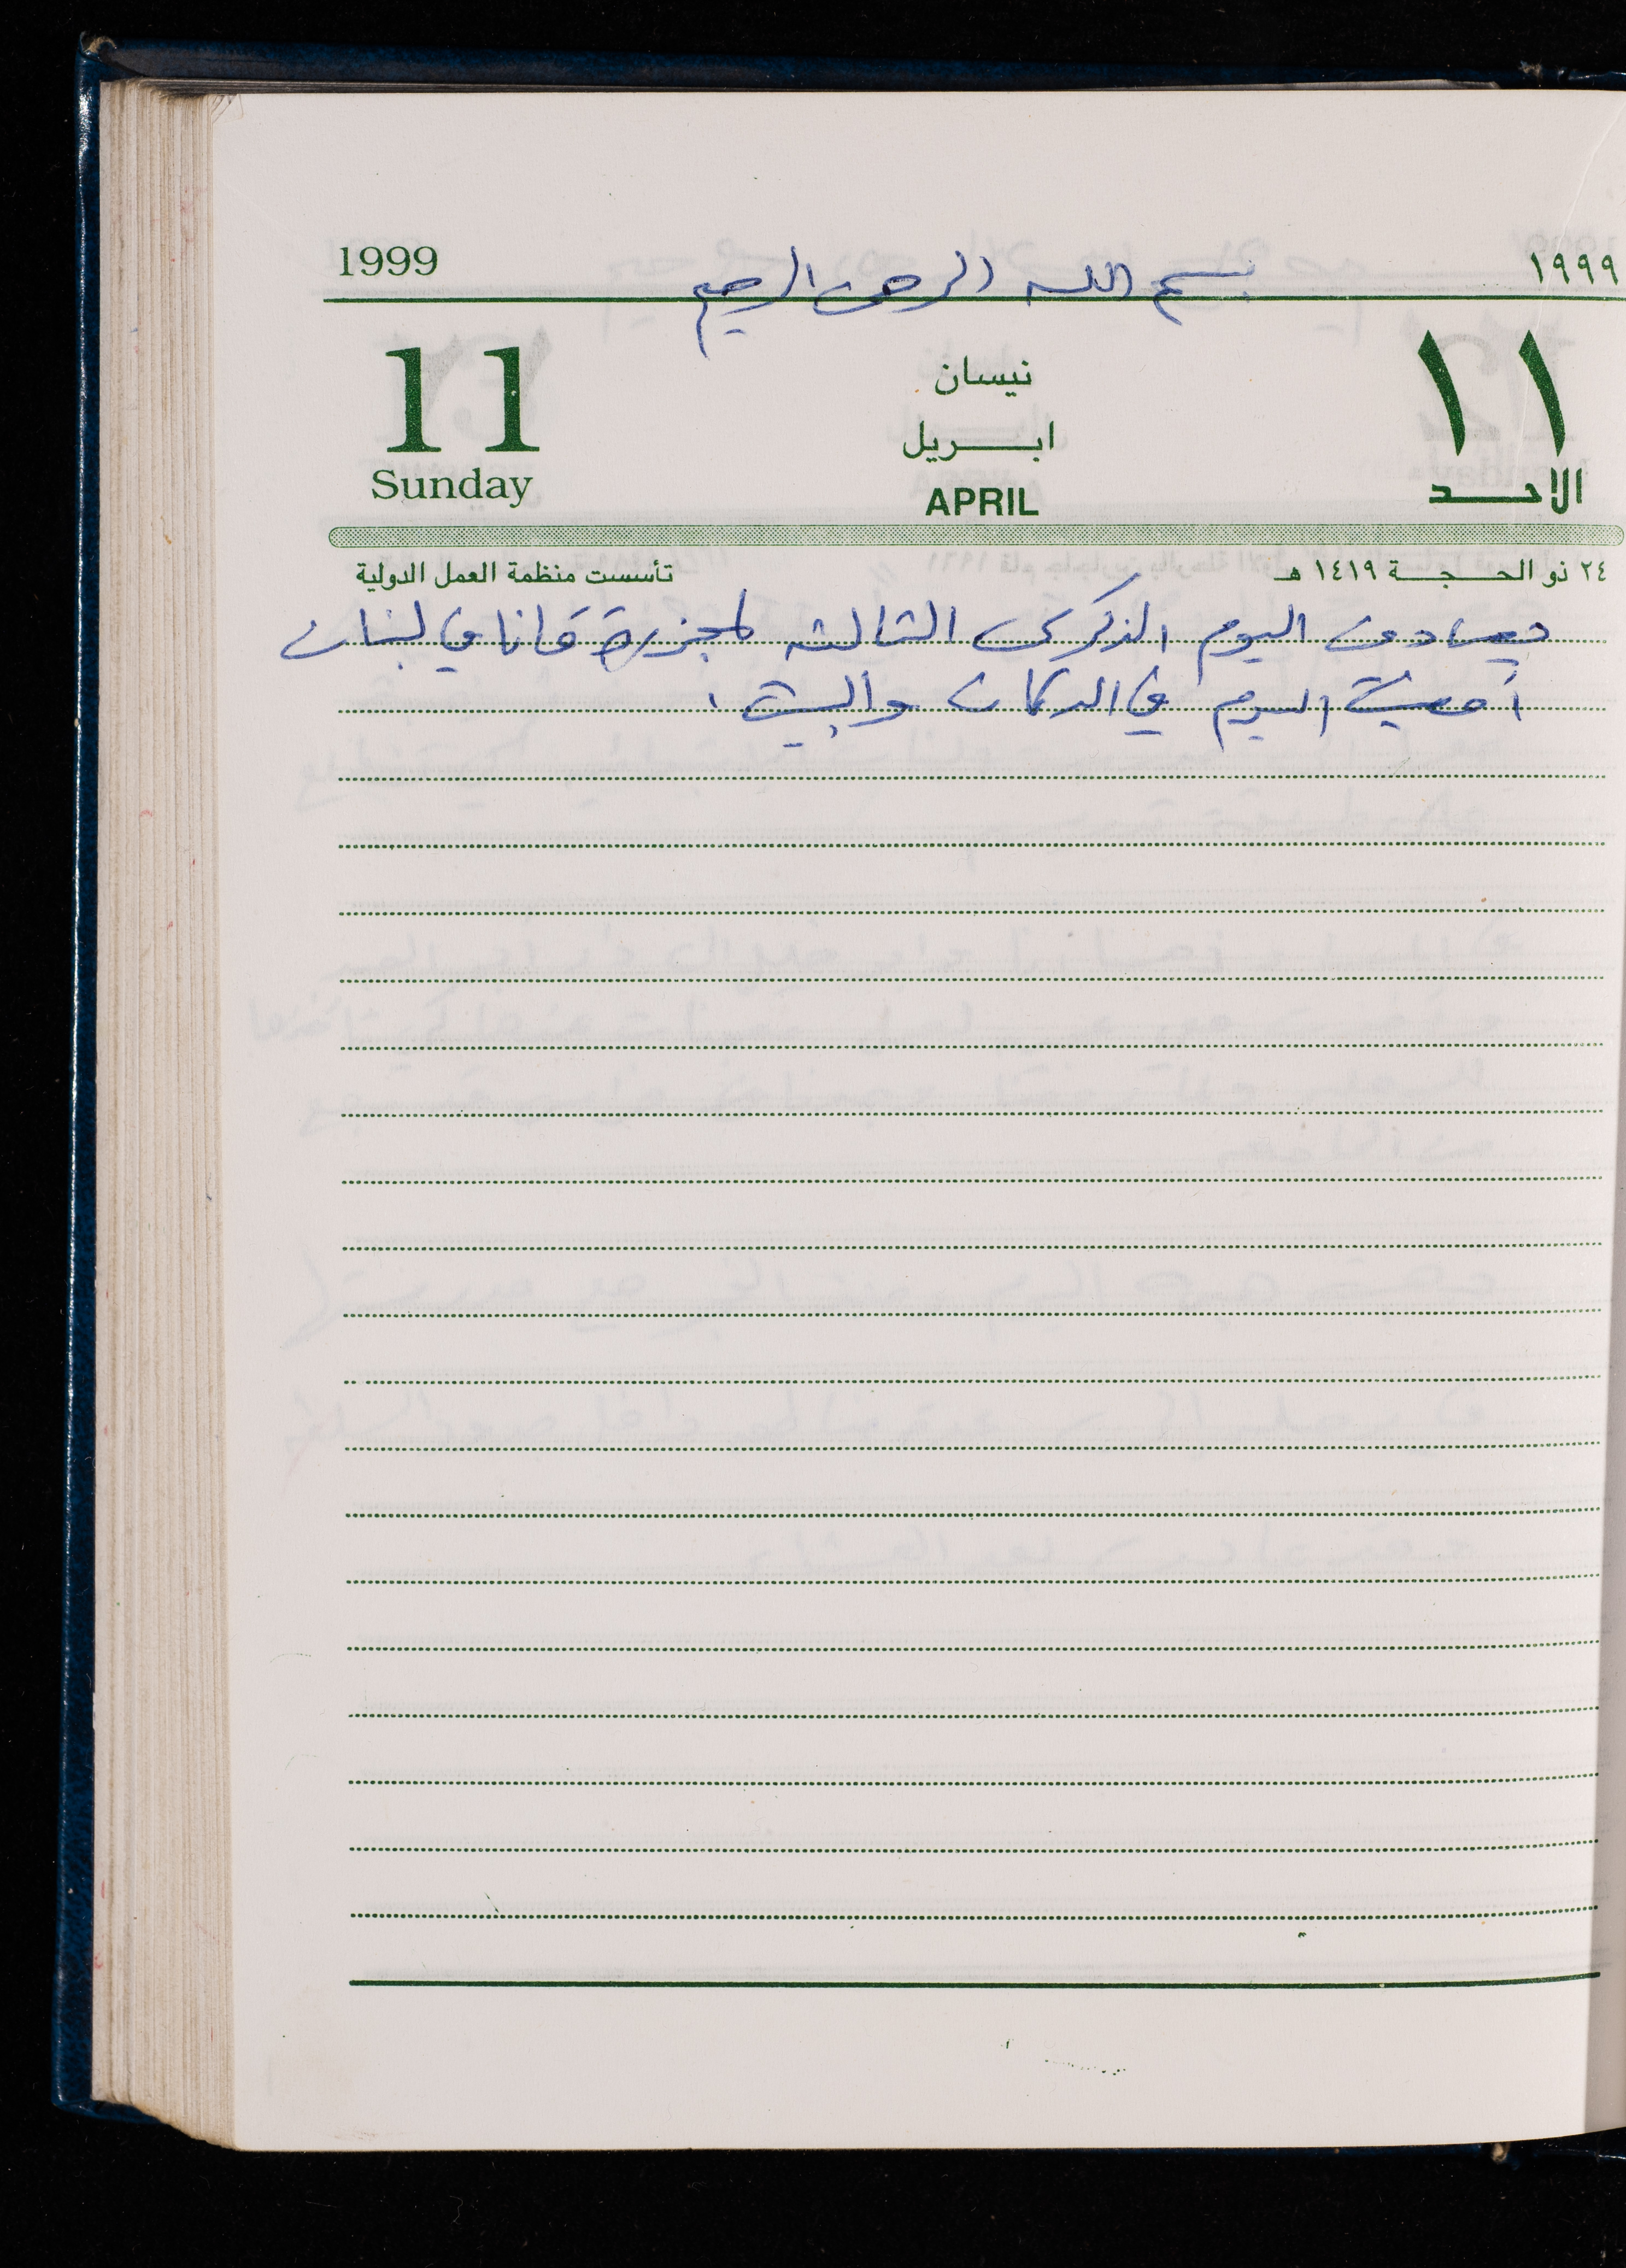 1999 بسم الله الرحمن الرحيم ١٩٩٩
11 نيسان ١١
ابريل
Sunday APRIL الاحد
٢٤ ذو الحجة ١٤١٩ هـ تأسست منظمة العمل الدولية
يصادف اليوم الذكرى الثالثه لمجزرة قانا في لبنان
أمضيت اليوم في الدكان والبيت .